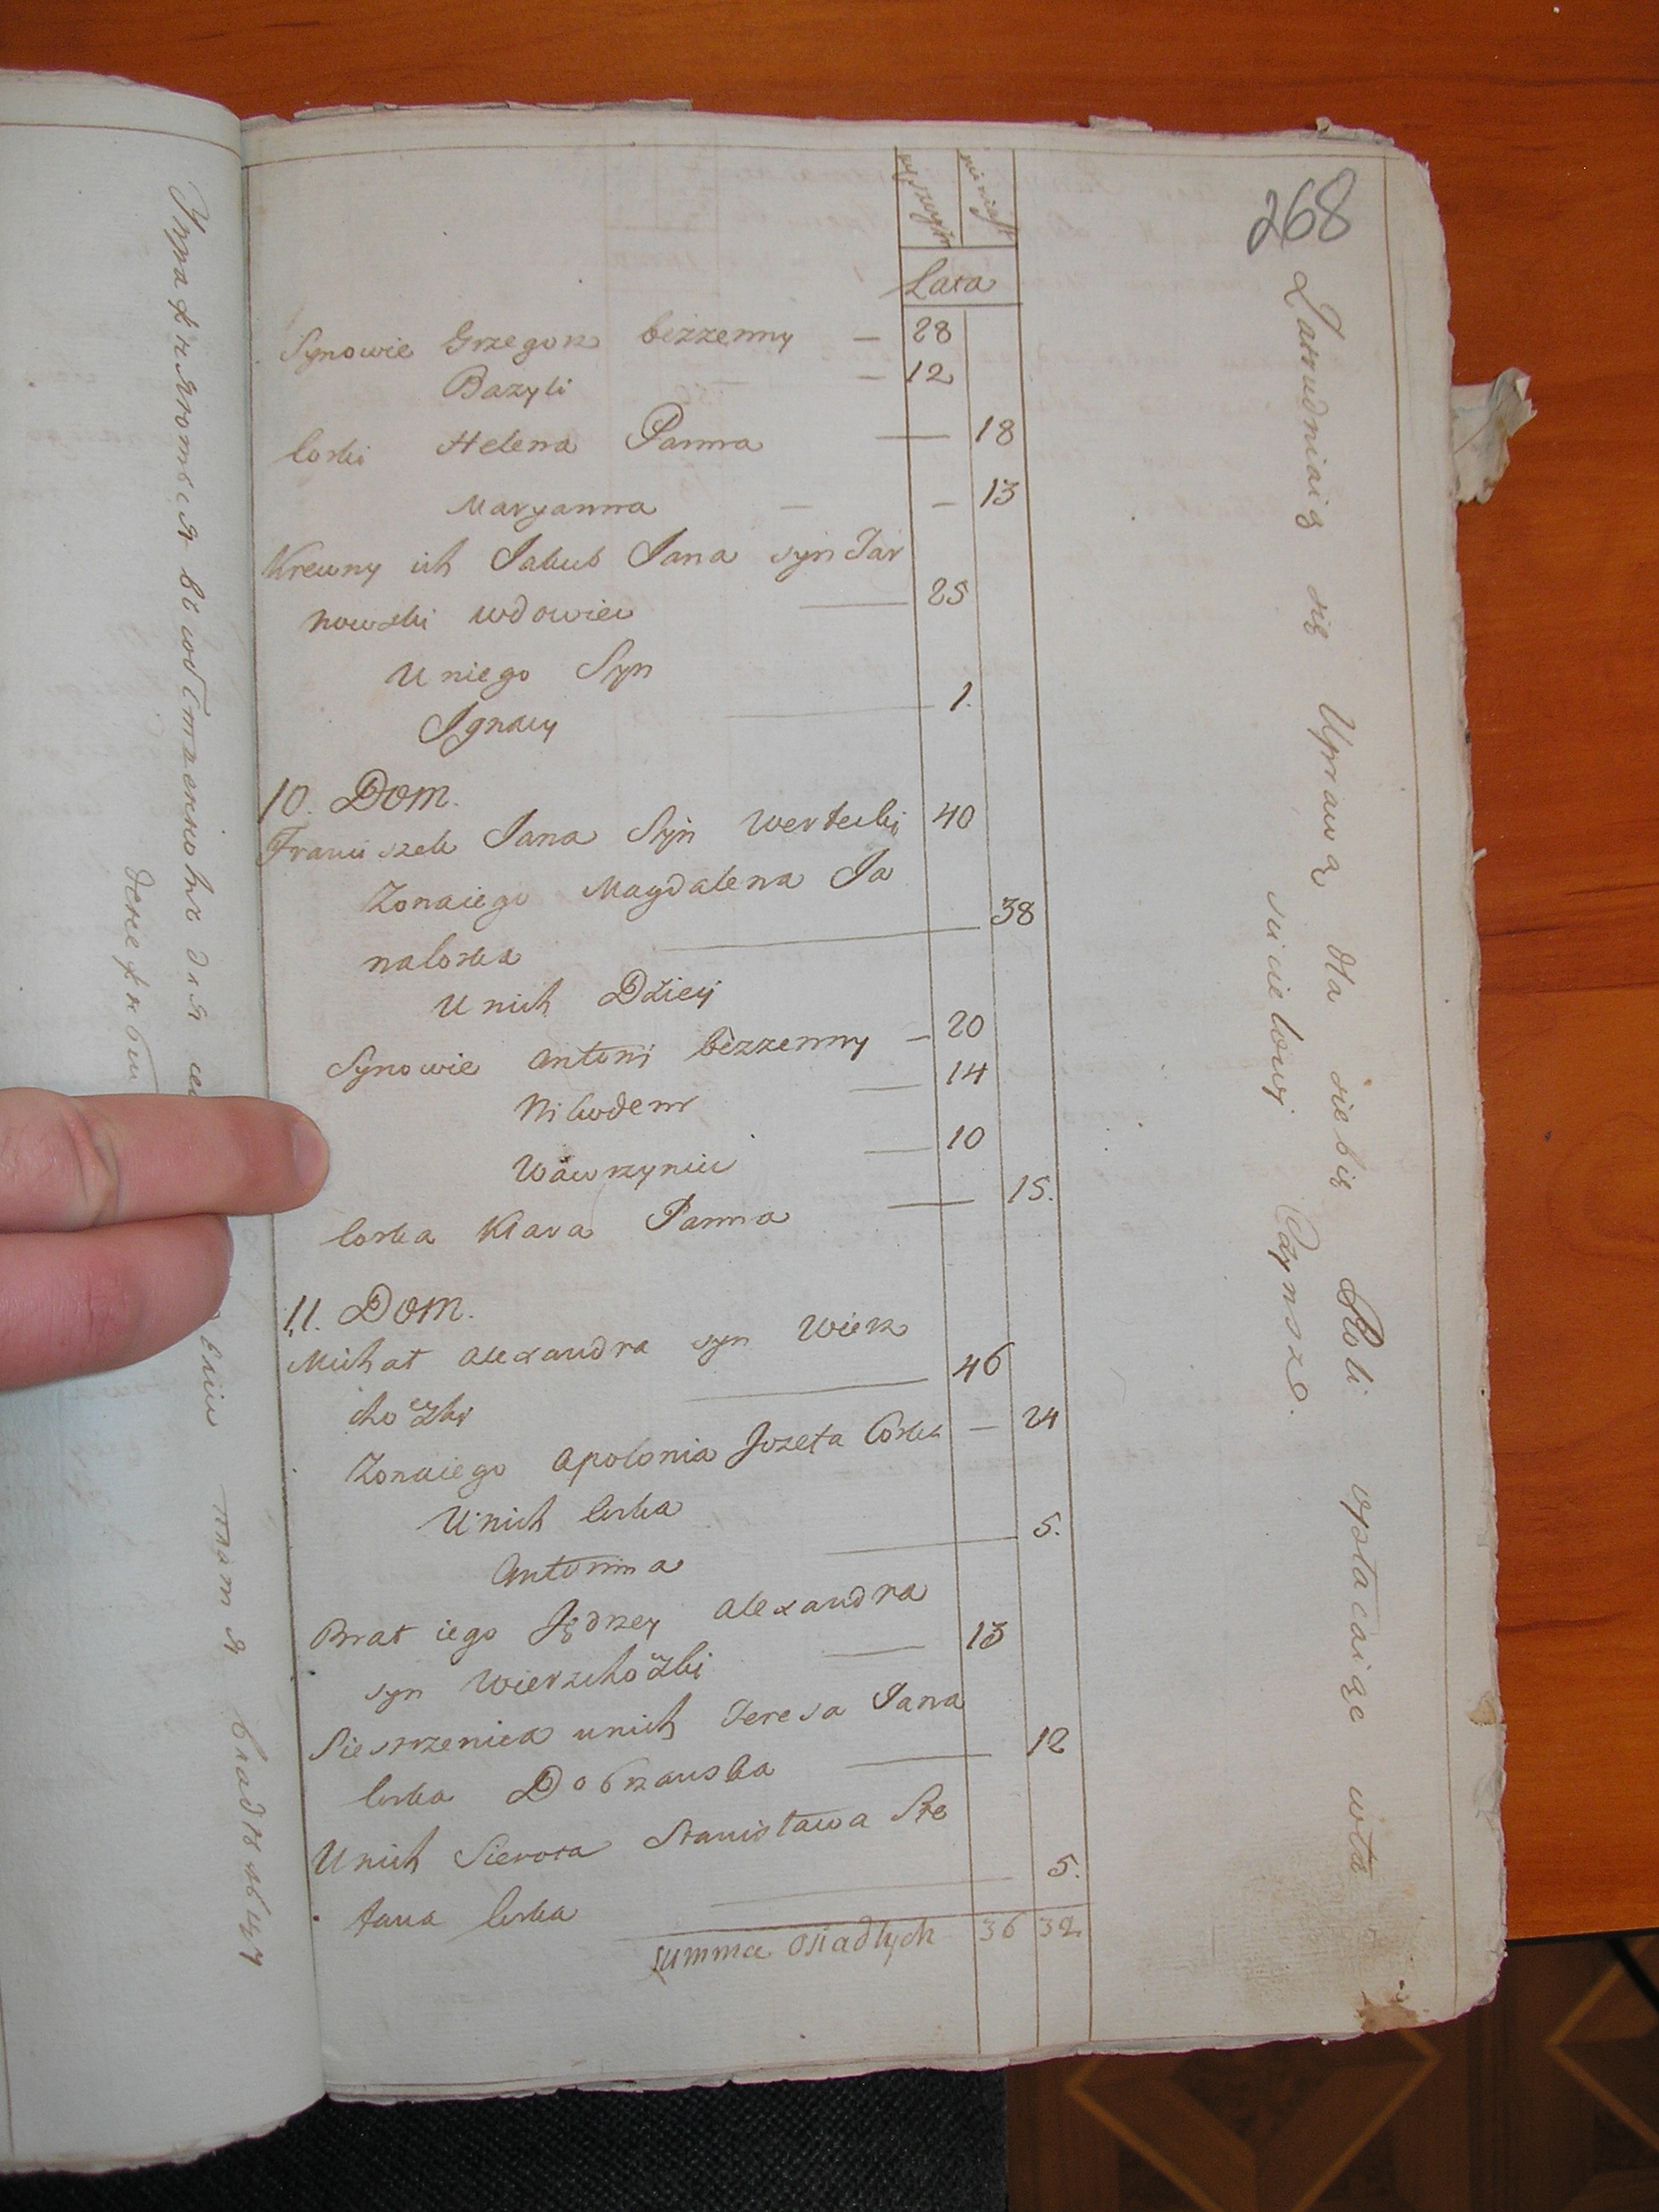 268
męzczyzn niewiast
Lata
Synowie Grzegorz bezzenny — 28
Bazyli — 12
Corki Helena Panna — 18
Maryanna — — 13
Krewny ich Jakub Jana syn Tar
nowski wdowiec — 25
U niego Syn
Ignacy — 1.
10. Dom.
Franciszek Jana Syn Wertecki 40
Zonaiego Magdalena Ja
na Corka — 38
U nich Dzieci
Synowie Antoni bezzenny — 20
Nikodem — 14
Wawrzyniec — 10
Corka Klara Panna — 15.
11. Dom.
Michał Alexandra syn Wierz
choczki — 46
Zonaiego Apolonia Jozefa Corka — 24
U nich Corka
Antonina — 5.
Brat iego Jędrzey Alexandra
syn Wierzchoczki — 13
Siestrzenica unich Teresa Jana
Corka Dobrzanska — 12
Unich Sierota Stanisława Ste
fana Corka — 5.
Summa Osiadłych 36 32
Zatrudniaią się Uprawą dla siebie Roli opłacaiąc wła
scicielowi Czynsze.